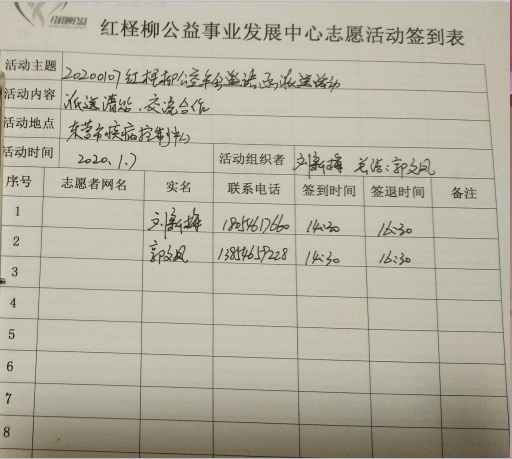 红柽柳公益事业发展中心志愿活动签到表
活动主题 20200107红柽柳公益年会邀请函派送活动
活动内容 派送请柬、交流合作
活动地点 东营市疾病控制中心
活动时间 2020.1.7 活动组织者 刘新梅 总结:郭文凤
序号 志愿者网名 实名 联系电话 签到时间 签退时间 备注
1 刘新梅 18054617660 14:30 16:30
2 郭文凤 13854659228 14:30 16:30
3
4
5
6
7
8